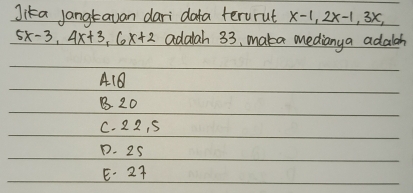 Jika jangkauan dari data terurut x-1, 2x-1, 3x,
5x-3, 4x+3, 6x+2 adalah 33, maka medianya adalah
A 18
B. 20
C. 22,5
D. 25
E. 27